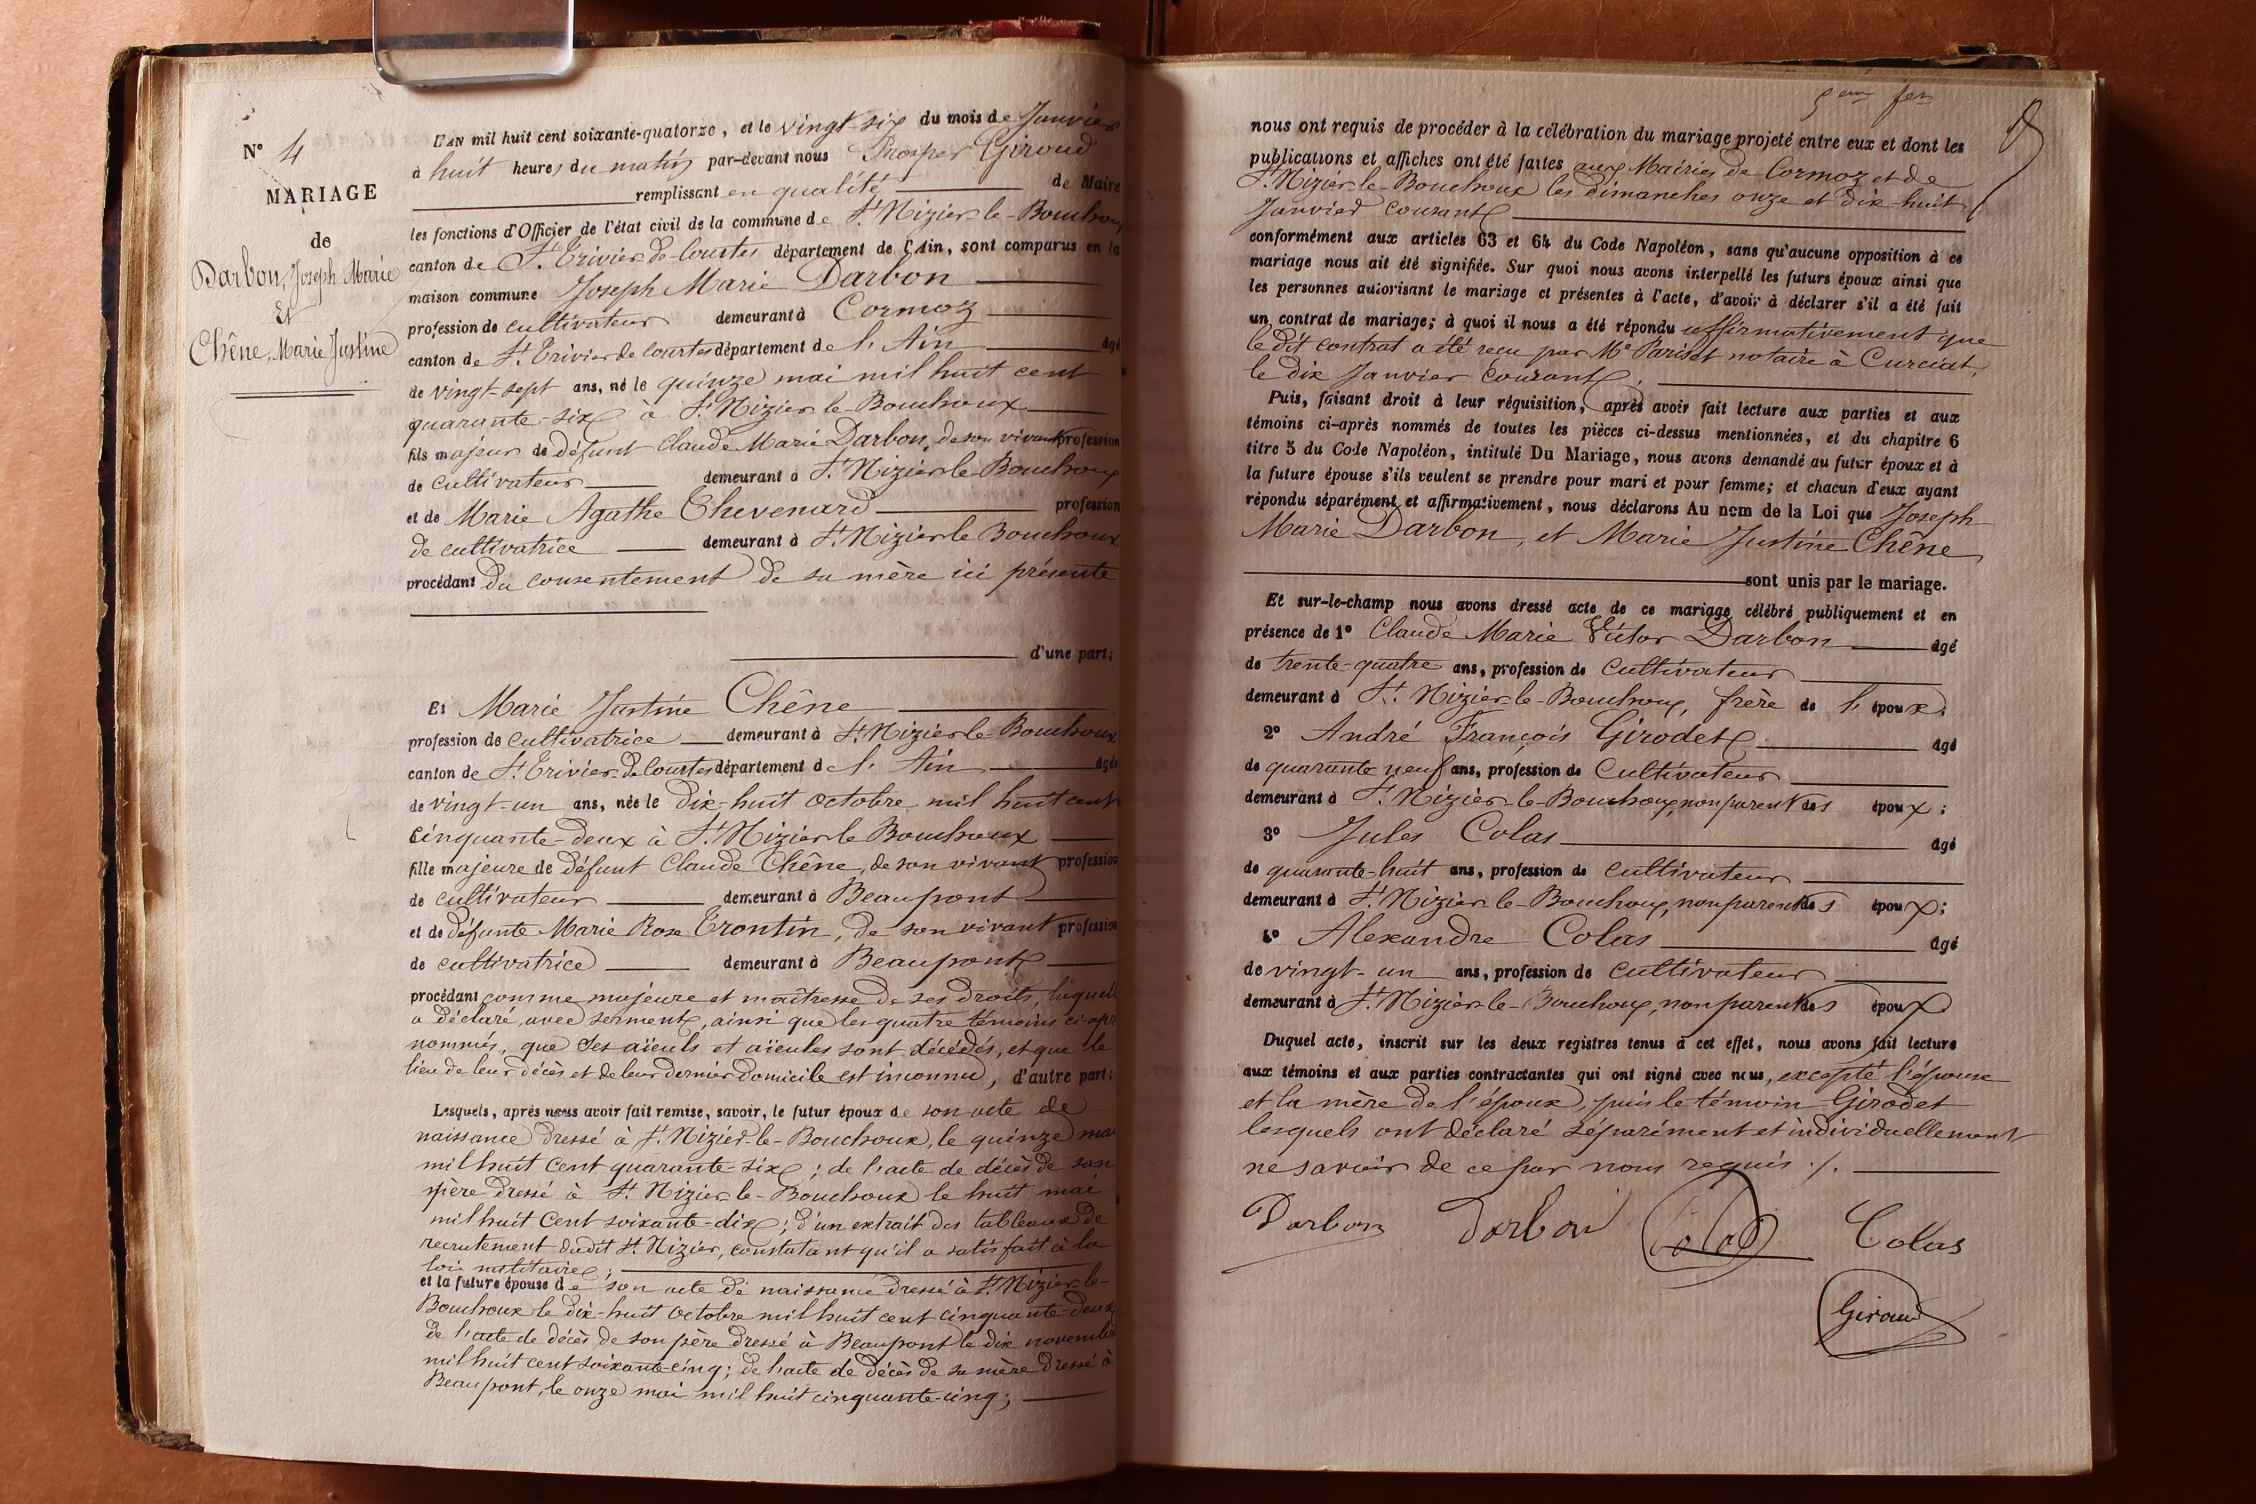 N° 4
MARIAGE
de
Darbon, Joseph Marie
Et
Chêne, Marie Justine
L'AN mil huit cent soixante-quatorze, et le vingt-six du mois de Janvier
à huit heures du matin par-devant nous Prosper Giroud
remplissant en qualité de Maire
les fonctions d'Officier de l'état civil de la commune de St Nizier-le-Bouchoux
canton de St Trivier-de-Courtes département de l'Ain, sont comparus en la
maison commune Joseph Marie Darbon
profession de cultivateur demeurant à Cormoz
canton de St Trivier de Courtes département de l'Ain âgé
de vingt-sept ans, né le quinze mai mil huit cent
quarante-six à St Nizier-le-Bouchoux
fils majeur de défunt Claude Marie Darbon, de son vivant profession
de cultivateur demeurant à St Nizier le Bouchoux
et de Marie Agathe Chevenard profession
de cultivatrice demeurant à St Nizier le Bouchoux
procédant du consentement de sa mère ici présente
d'une part;
Et Marie Justine Chêne
profession de cultivatrice demeurant à St Nizier-le-Bouchoux
canton de St Trivier-de-Courtes département de l'Ain âgée
de vingt-un ans, née le dix-huit octobre mil huit cent
cinquante-deux à St Nizier le Bouchoux
fille majeure de défunt Claude Chêne, de son vivant profession
de cultivateur demeurant à Beaupont
et de défunte Marie Rose Trontin, de son vivant profession
de cultivatrice demeurant à Beaupont
procédant comme majeure et maîtresse de ses droits, laquelle
a déclaré avec serment, ainsi que les quatre témoins ci-après
nommés, que ses aïeuls et aïeules sont décédés, et que le
lieu de leur décès et de leur dernier domicile est inconnu, d'autre part;
Lesquels, après nous avoir fait remise, savoir, le futur époux de son acte de
naissance dressé à St Nizier-le-Bouchoux, le quinze mai
mil huit cent quarante-six; de l'acte de décès de son
père dressé à St Nizier-le-Bouchoux le huit mai
mil huit cent soixante-dix; d'un extrait des tableaux de
recrutement dudit St Nizier, constatant qu'il a satisfait à la
loi militaire;
et la future épouse de son acte de naissance dressé à St Nizier-le-
Bouchoux le dix-huit octobre mil huit cent cinquante-deux
de l'acte de décès de son père dressé à Beaupont le dix novembre
mil huit cent soixante-cinq; de l'acte de décès de sa mère dressé à
Beaupont, le onze mai mil huit cinquante-cinq;
nous ont requis de procéder à la célébration du mariage projeté entre eux et dont les
publications et affiches ont été faites aux Mairies de Cormoz et de
St Nizier-le-Bouchoux les dimanches onze et dix-huit
Janvier courant
conformément aux articles 63 et 64 du Code Napoléon, sans qu'aucune opposition à ce
mariage nous ait été signifiée. Sur quoi nous avons interpellé les futurs époux ainsi que
les personnes autorisant le mariage et présentes à l'acte, d'avoir à déclarer s'il a été fait
un contrat de mariage; à quoi il nous a été répondu affirmativement que
le dit contrat a été reçu par Me Pariset notaire à Curciat,
le dix Janvier courant.
Puis, faisant droit à leur réquisition, après avoir fait lecture aux parties et aux
témoins ci-après nommés de toutes les pièces ci-dessus mentionnées, et du chapitre 6
titre 5 du Code Napoléon, intitulé Du Mariage, nous avons demandé au futur époux et à
la future épouse s'ils veulent se prendre pour mari et pour femme; et chacun d'eux ayant
répondu séparément et affirmativement, nous déclarons Au nom de la Loi que Joseph
Marie Darbon, et Marie Justine Chêne
sont unis par le mariage.
Et sur-le-champ nous avons dressé acte de ce mariage célébré publiquement et en
présence de 1° Claude Marie Victor Darbon âgé
de trente-quatre ans, profession de cultivateur
demeurant à St Nizier-le-Bouchoux, frère de l'époux;
2° André François Girodet âgé
de quarante neuf ans, profession de cultivateur
demeurant à St Nizier-le-Bouchoux, non parent des époux;
3° Jules Colas âgé
de quarante-huit ans, profession de cultivateur
demeurant à St Nizier-le-Bouchoux, non parent des époux;
4° Alexandre Colas âgé
de vingt-un ans, profession de cultivateur
demeurant à St Nizier-le-Bouchoux, non parent des époux
Duquel acte, inscrit sur les deux registres tenus à cet effet, nous avons fait lecture
aux témoins et aux parties contractantes qui ont signé avec nous, excepté l'épouse
et la mère de l'époux, puis le témoin Girodet
lesquels ont déclaré séparément et individuellement
ne savoir de ce par nous requis ./.
Darbon Darbon Colas Colas
Giroud